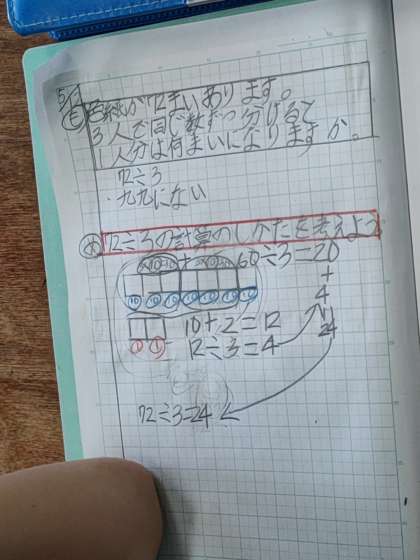 5/
も 色紙が72まいあります。
3人で同じ数ずつ分けると
1人分は何まいになりますか。
72÷3
・九九にない
め 72÷3の計算のしかたを考えよう
60÷3=20
+
4
24
10 10 10 10 10 10
10+2=12
1 1
12÷3=4
72÷3=24